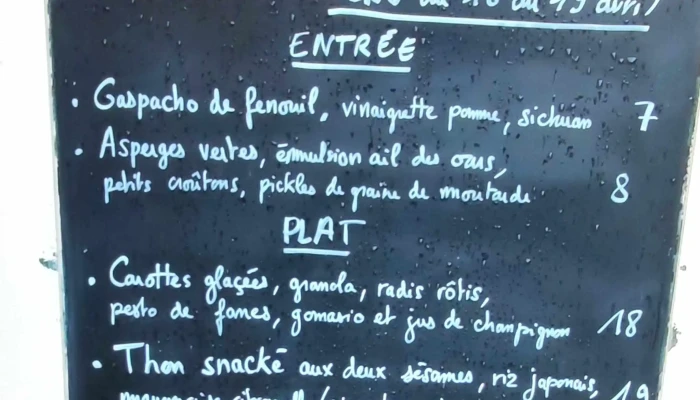 du 16 au 19 avril
ENTRÉE
• Gaspacho de fenouil, vinaigrette pomme, sichuan 7
• Asperges vertes, émmulsion ail des ours,
petits croûtons, pickles de graine de moutarde 8
PLAT
• Carottes glaçées, granola, radis rôtis,
pesto de fanes, gomasio et jus de champignon 18
• Thon snacké aux deux sésames, riz japonais, 19